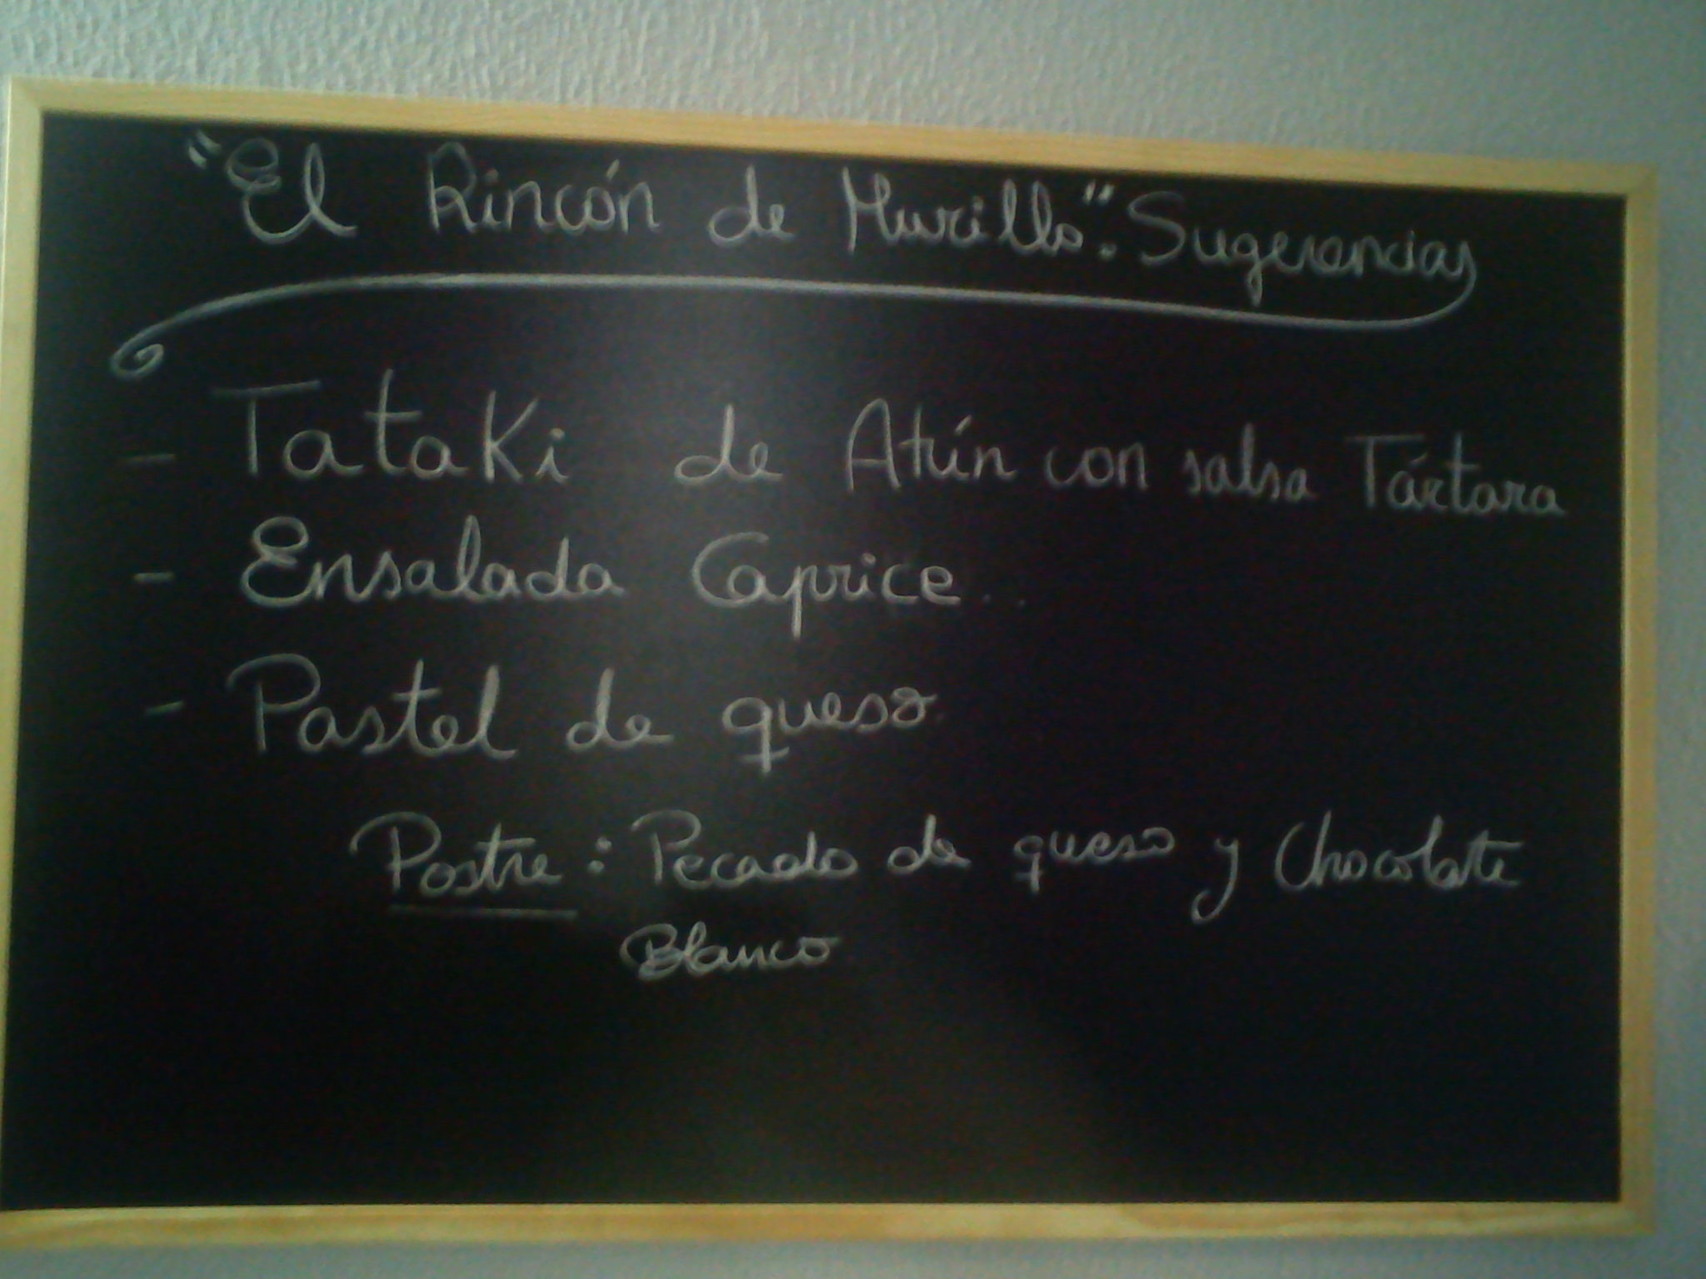 "El Rincón de Murillo". Sugerencias
- Tataki de Atún con salsa Tártara
- Ensalada Caprice..
- Pastel de queso.
Postre: Pecado de queso y Chocolate
Blanco